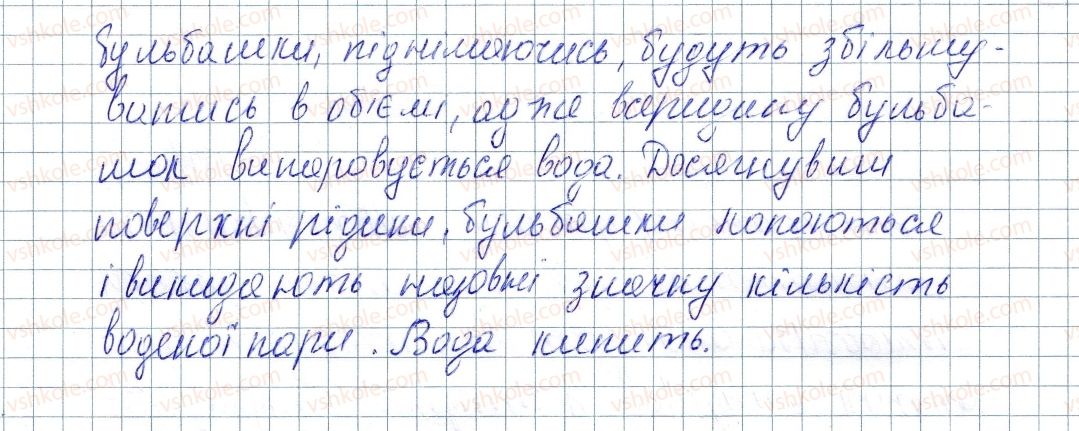 бульбашки, піднімаючись, будуть збільшу-
ватись в об'ємі, адже всередину бульба-
шок випаровується вода. Досягнувши
поверхні рідини, бульбашки лопаються
і викидають назовні значну кількість
водяної пари. Вода кипить.